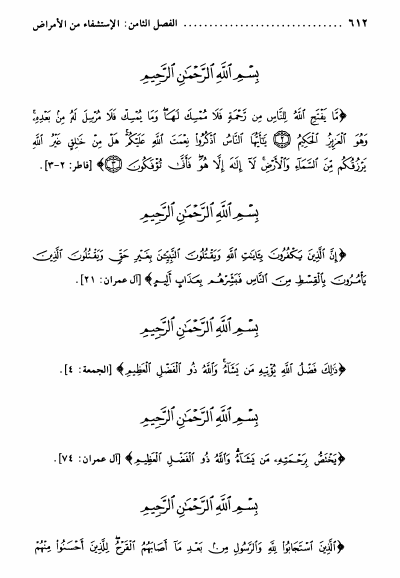 ٦١٢ .............................. الفصل الثامن: الإستشفاء من الأمراض
بِسْمِ ٱللَّهِ ٱلرَّحْمَٰنِ ٱلرَّحِيمِ
﴿مَّا يَفْتَحِ ٱللَّهُ لِلنَّاسِ مِن رَّحْمَةٍ فَلَا مُمْسِكَ لَهَا ۖ وَمَا يُمْسِكْ فَلَا مُرْسِلَ لَهُۥ مِنۢ بَعْدِهِۦ ۚ
وَهُوَ ٱلْعَزِيزُ ٱلْحَكِيمُ ۝٢ يَٰٓأَيُّهَا ٱلنَّاسُ ٱذْكُرُوا۟ نِعْمَتَ ٱللَّهِ عَلَيْكُمْ ۚ هَلْ مِنْ خَٰلِقٍ غَيْرُ ٱللَّهِ
يَرْزُقُكُم مِّنَ ٱلسَّمَآءِ وَٱلْأَرْضِ ۚ لَآ إِلَٰهَ إِلَّا هُوَ ۖ فَأَنَّىٰ تُؤْفَكُونَ ۝٣﴾ [فاطر: ٢-٣].
بِسْمِ ٱللَّهِ ٱلرَّحْمَٰنِ ٱلرَّحِيمِ
﴿إِنَّ ٱلَّذِينَ يَكْفُرُونَ بِـَٔايَٰتِ ٱللَّهِ وَيَقْتُلُونَ ٱلنَّبِيِّـۧنَ بِغَيْرِ حَقٍّ وَيَقْتُلُونَ ٱلَّذِينَ
يَأْمُرُونَ بِٱلْقِسْطِ مِنَ ٱلنَّاسِ فَبَشِّرْهُم بِعَذَابٍ أَلِيمٍ﴾ [آل عمران: ٢١].
بِسْمِ ٱللَّهِ ٱلرَّحْمَٰنِ ٱلرَّحِيمِ
﴿ذَٰلِكَ فَضْلُ ٱللَّهِ يُؤْتِيهِ مَن يَشَآءُ ۚ وَٱللَّهُ ذُو ٱلْفَضْلِ ٱلْعَظِيمِ﴾ [الجمعة: ٤].
بِسْمِ ٱللَّهِ ٱلرَّحْمَٰنِ ٱلرَّحِيمِ
﴿يَخْتَصُّ بِرَحْمَتِهِۦ مَن يَشَآءُ ۗ وَٱللَّهُ ذُو ٱلْفَضْلِ ٱلْعَظِيمِ﴾ [آل عمران: ٧٤].
بِسْمِ ٱللَّهِ ٱلرَّحْمَٰنِ ٱلرَّحِيمِ
﴿ٱلَّذِينَ ٱسْتَجَابُوا۟ لِلَّهِ وَٱلرَّسُولِ مِنۢ بَعْدِ مَآ أَصَابَهُمُ ٱلْقَرْحُ ۚ لِلَّذِينَ أَحْسَنُوا۟ مِنْهُمْ